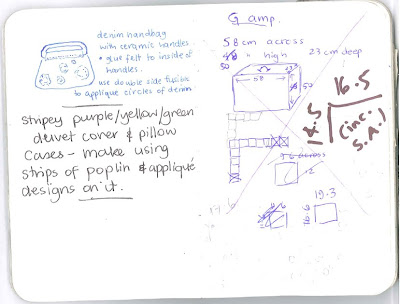 denim handbag
with ceramic handles
• glue felt to inside of
handles.
use double side fusible
to applique circles of denim
stripey purple/yellow/green
duvet cover & pillow
cases - make using
strips of poplin & appliqué
designs on it.
G amp.
58 cm across
" high 23 cm deep
50
58
50
16.5
(inc.
S.A.)
96 across
19.3